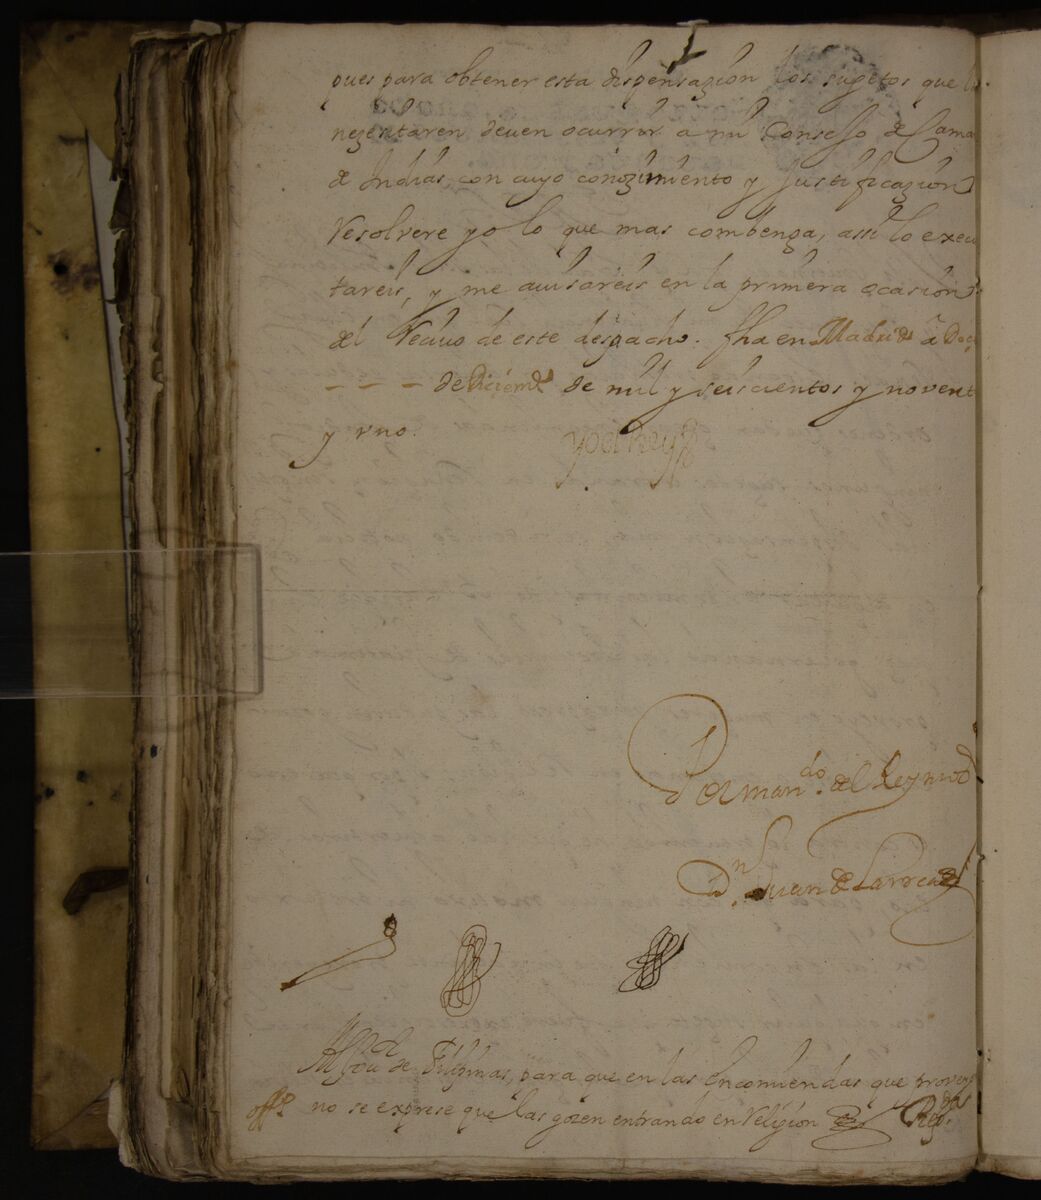 pues para obtener esta dispensazion los sugetos que la
nezesitaren deven ocurrir a mi Consejo de Cama
de Indias con cuyo conozimiento y justificazion
resolvere yo lo que mas combenga, assi lo execu
tareis, y me avisareis en la primera ocasion
del recivo de este despacho. fha en Madrid à Doçe
— — — de Diciemᵉ de mil y seiscientos y novent
y vno.
yo el Rey
Por mandᵒ. del Rey nrô S
Dⁿ. Juan de Larrea
Al Govᵒʳ de Filipinas, para que en las encomiendas que provey
offᵒ no se exprese que las gozen entrando en religion Regᵈᵃ